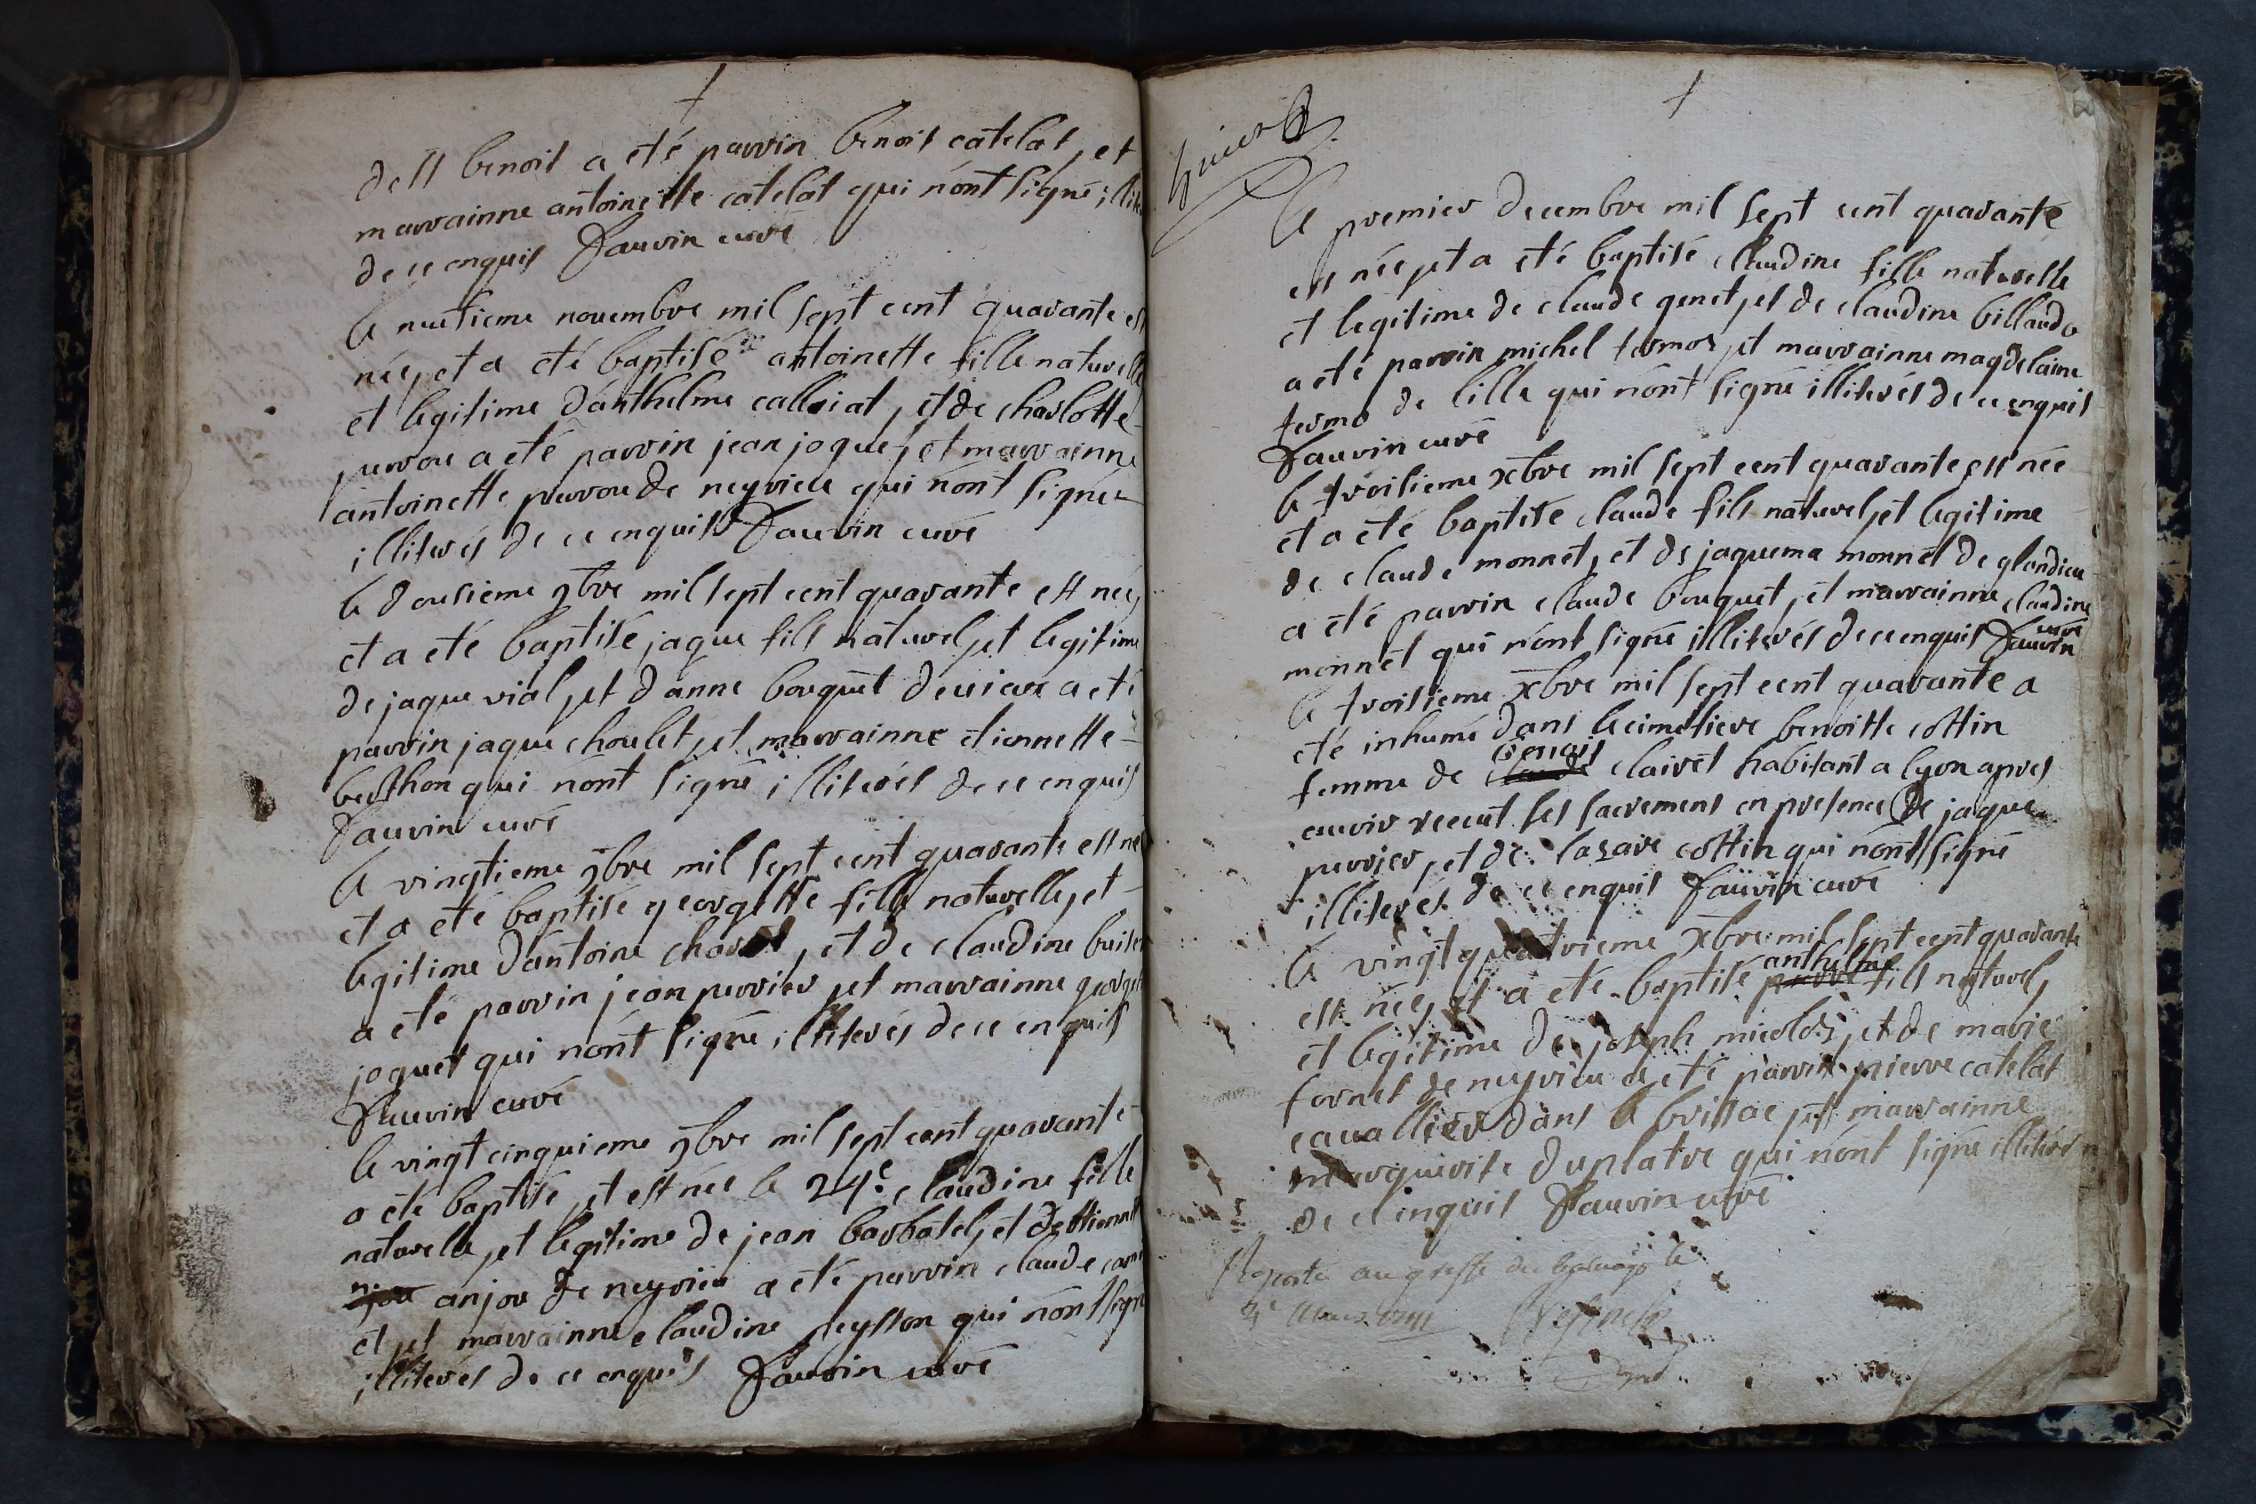 de st benoit a eté parrin benoit catelat, et
marrainne antoinette catelat qui n'ont signé illite
de ce enquis Fauvin curé
le neufieme novembre mil sept cent quarante est
née, et a eté baptisé antoinette fille naturelle
et legitime d'anthelme calloiat, et de charlotte
purrou a eté parrin jean joquet, et marrainne
antoinette purrou de neyrieu qui n'ont signé
illiterés de ce enquis Fauvin curé
le dousieme 9bre mil sept cent quarante est née,
et a eté baptisé jaque fils naturel, et legitime
de jaque vial, et d'anne bouquet de a eté
parrin jaque choulet, et marrainne etiennette
berthon qui n'ont signé illiterés de ce enquis
Fauvin curé
le vingtieme 9bre mil sept cent quarante est né
et a eté baptisé georgette fille naturelle, et
legitime d'antoine, et de claudine
a eté parrin jean perrier, et marrainne georget
joquet qui n'ont signé illiterés de ce enquis
Fauvin curé
le vingt cinquieme 9bre mil sept cent quarante
a eté baptisé, et est née le 24e. claudine fille
naturelle, et legitime de jean barbatel, et d'ettiennet
anjou de neyrieu a eté parrin claude
et, et marrainne claudine peysson qui n'ont signé
illiterés de ce enquis Fauvin curé
le premier decembre mil sept cent quarante
est née, et a eté baptisé claudine fille naturelle
et legitime de claude genet, et de claudine billaud a
a eté parrin michel termoz, et marrainne magdelaine
termo de lille qui n'ont signé illiterés de ce enquis
Fauvin curé
le troisieme xbre mil sept cent quarante est née
et a eté baptisé claude fils naturel, et legitime
de claude monnet, et de jaquema monnet de glandieu
a eté parrin claude bouquet, et marrainne claudine
monnet qui n'ont signé illiterés de ce enquis Fauvin curé
le troisieme xbre mil sept cent quarante a
eté inhumé dans le cimetiere benoitte cottin
femme de claude benoit clairet habitant a lyon apres
auvir receut ses sacremens en presence de jaque
perrier, et de lasare cottin qui n'ont signé
illiterés de ce enquis Fauvin curé
le vingt quatrieme xbre mil sept cent quarante
est née, et a eté baptisé pierre anthelme fils naturel,
et legitime de joseph micoloz, et de marie
fornet de neyrieu a eté parrin pierre catelat
cavallier dans le brissac, et marrainne
marguerite duplatre qui n'ont signé illiterés
de ce enquis Fauvin curé
au greffe du